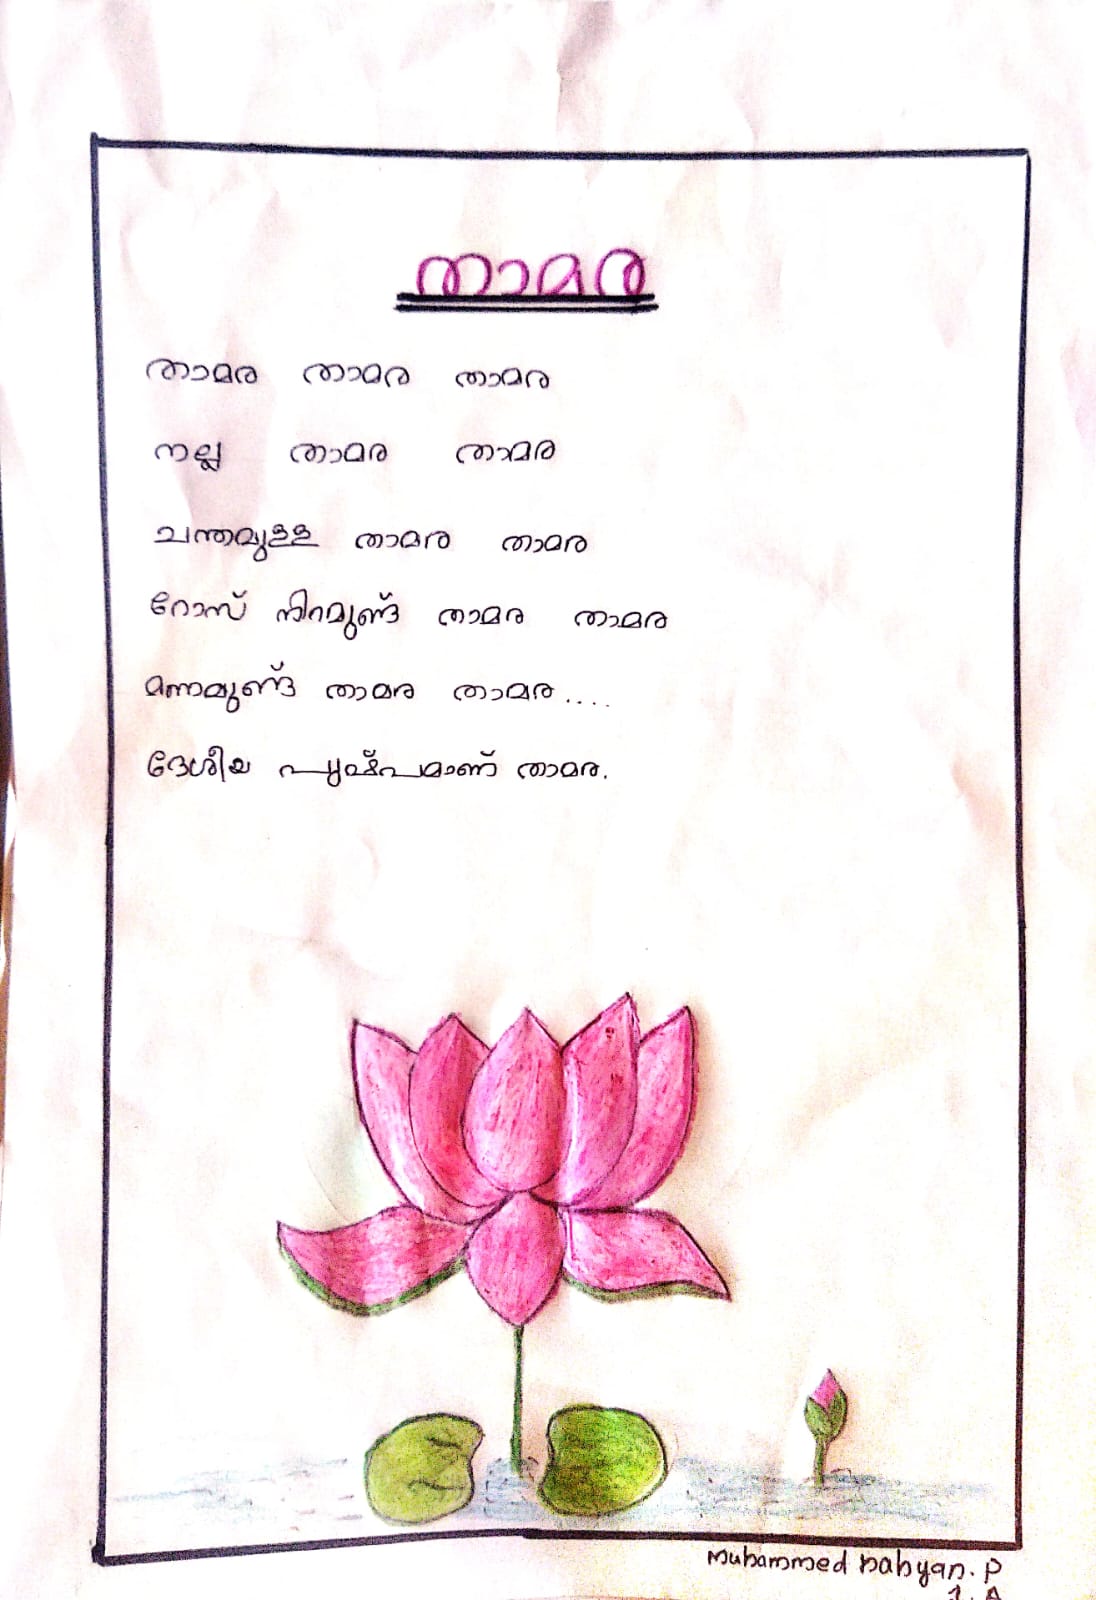 താമര
താമര താമര താമര
നല്ല താമര താമര
ചന്തമുള്ള താമര താമര
റോസ് നിറമുണ്ട് താമര താമര
മണമുണ്ട് താമര താമര....
ദേശീയ പുഷ്പമാണ് താമര.
Muhammed nahyan. P
1. A